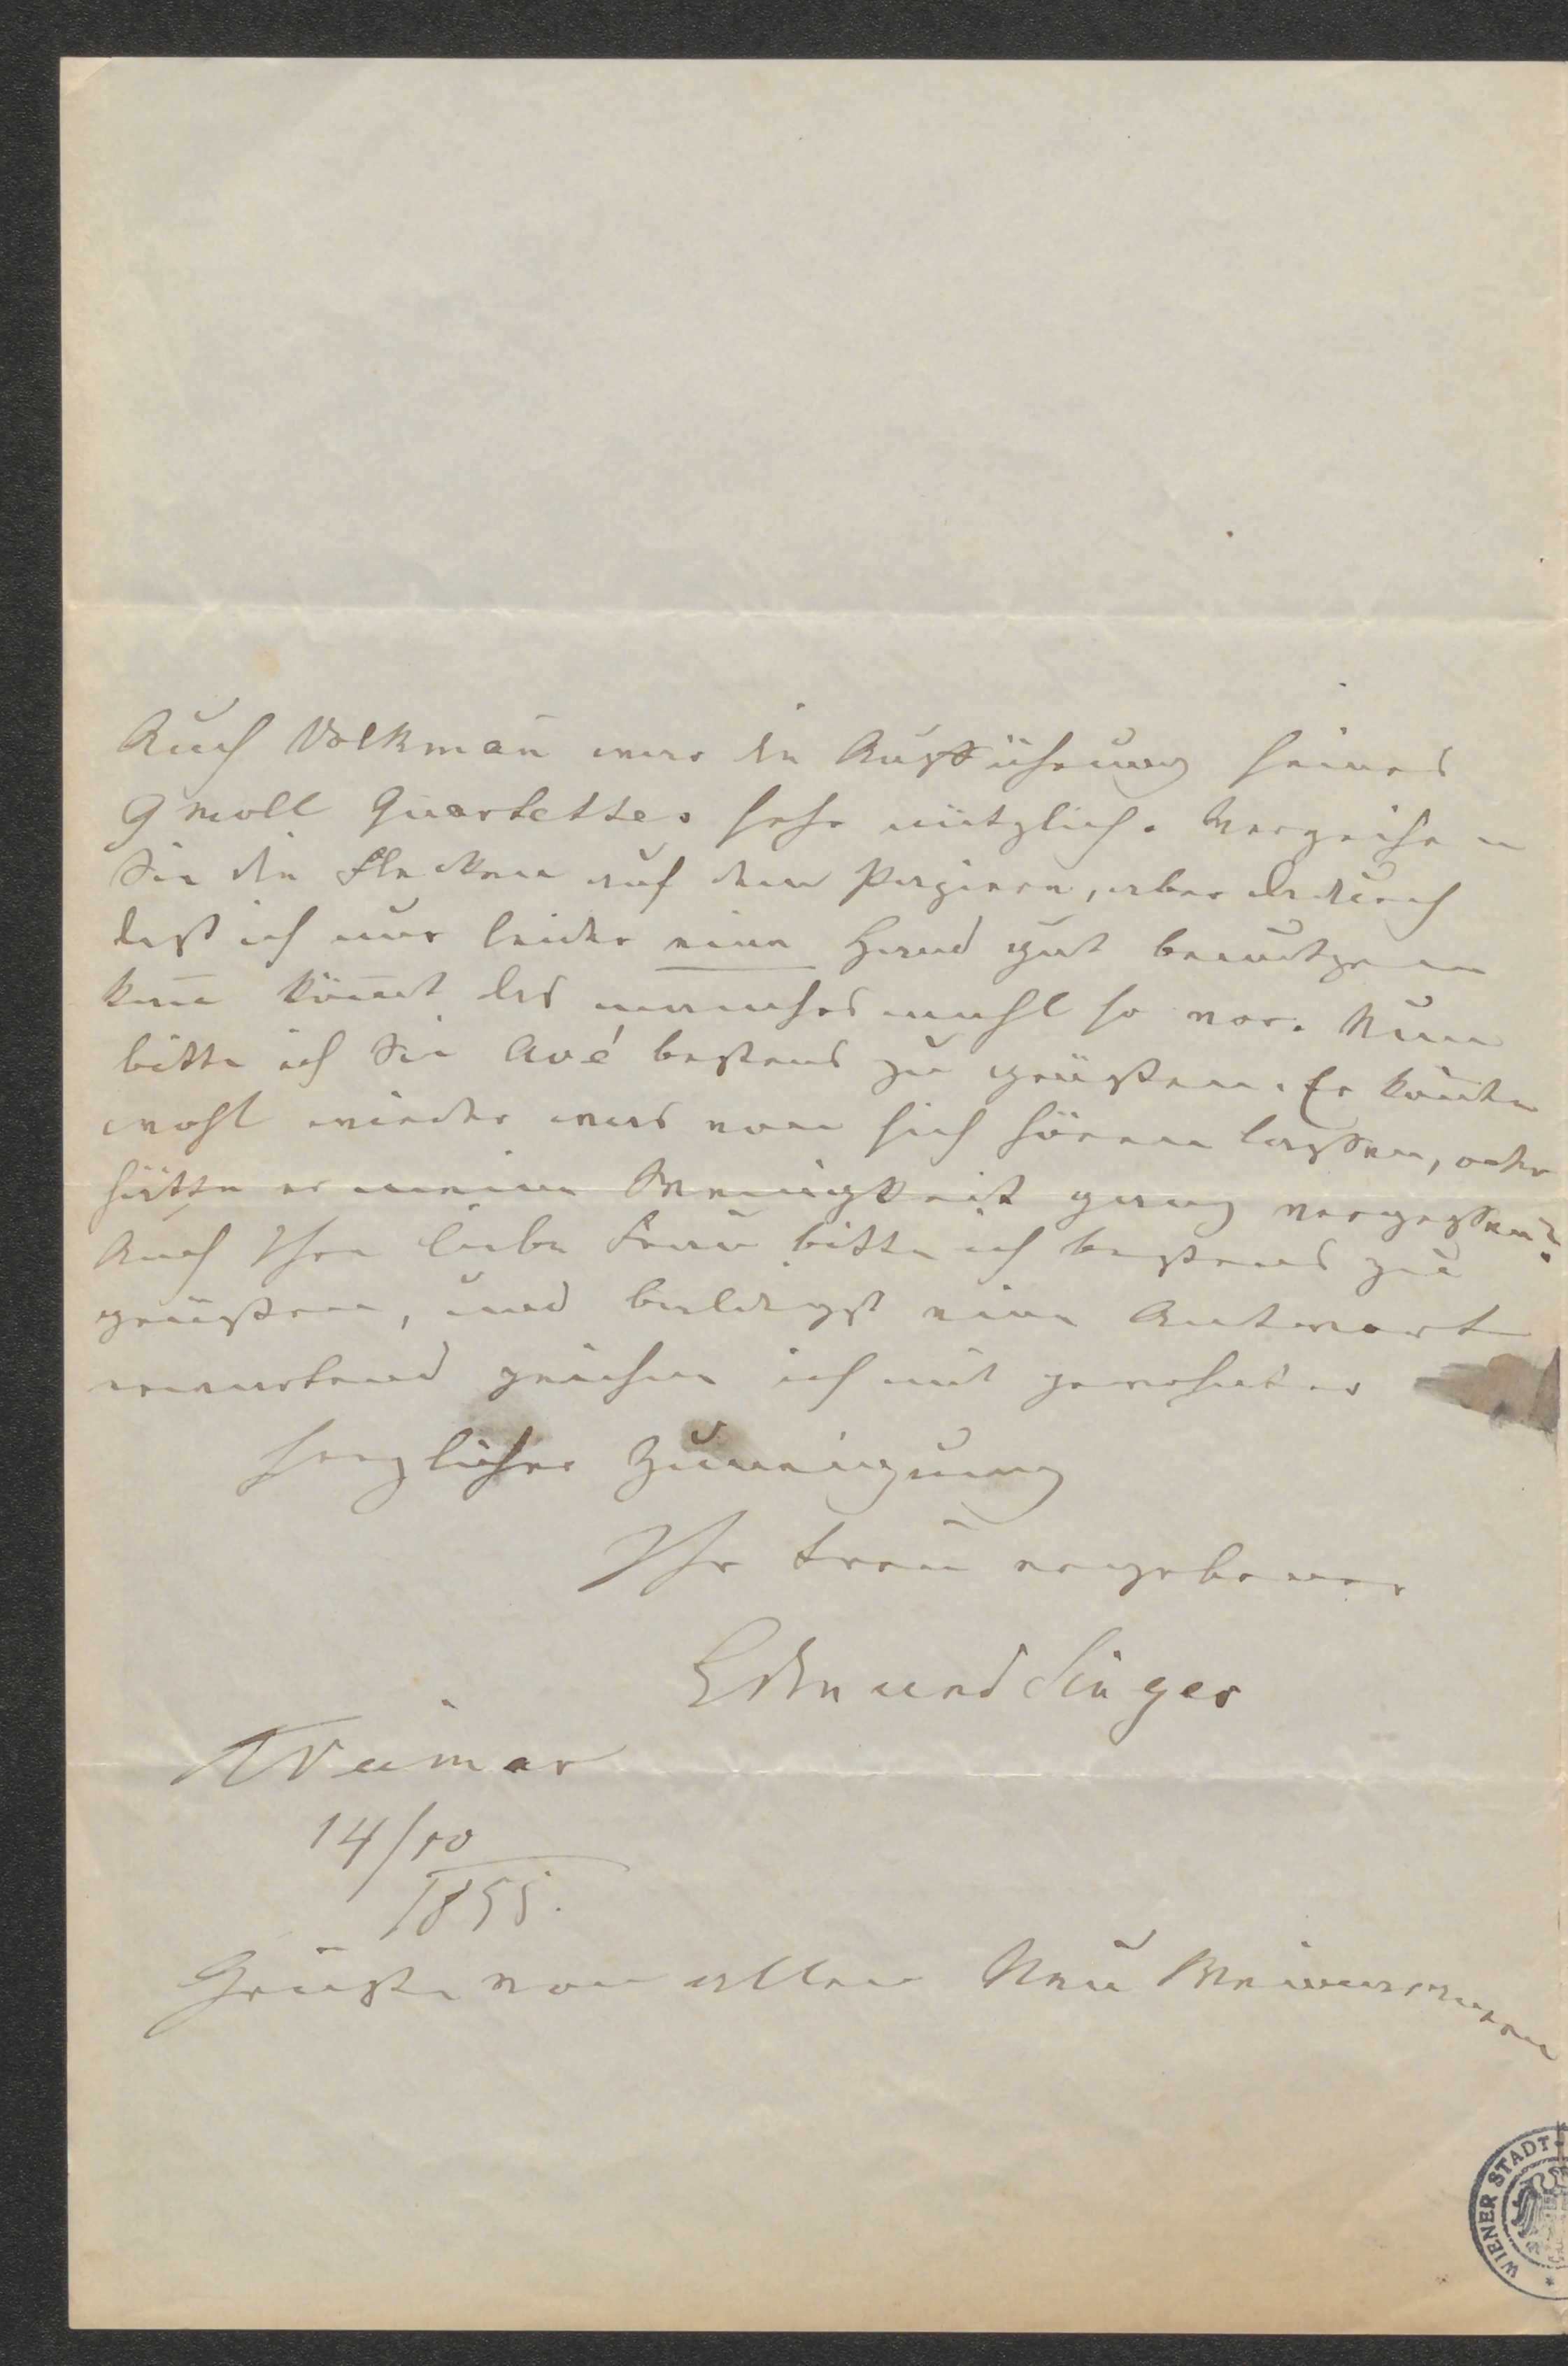 Auch Volkman̄ war die Aufführung seines
G moll Quartettes sehr nützlich. Verzeihen
Sie die Flecken auf dem Papiere, aber dadurch
daß ich nur leider eine Hand gut benützen
kan̄ kom̄t das manches mahl so vor. Nun
bitte ich Sie Avé bestens zu grüßen. Er kön̄te
wohl wieder was von sich hören lassen, oder
hätte er meine Wenigkeit ganz vergessen?
Auch Ihre liebe Frau bitte ich bestens zu
grüßen, und baldigst eine Antwort
erwartend zeichne ich mit gewohnter
herzlicher Zuneigung
Ihr treu ergebener
Edmund Singer
Weimar
14/10
1855.
Grüße von allen Neu Weimaranern
WIENER STADT-